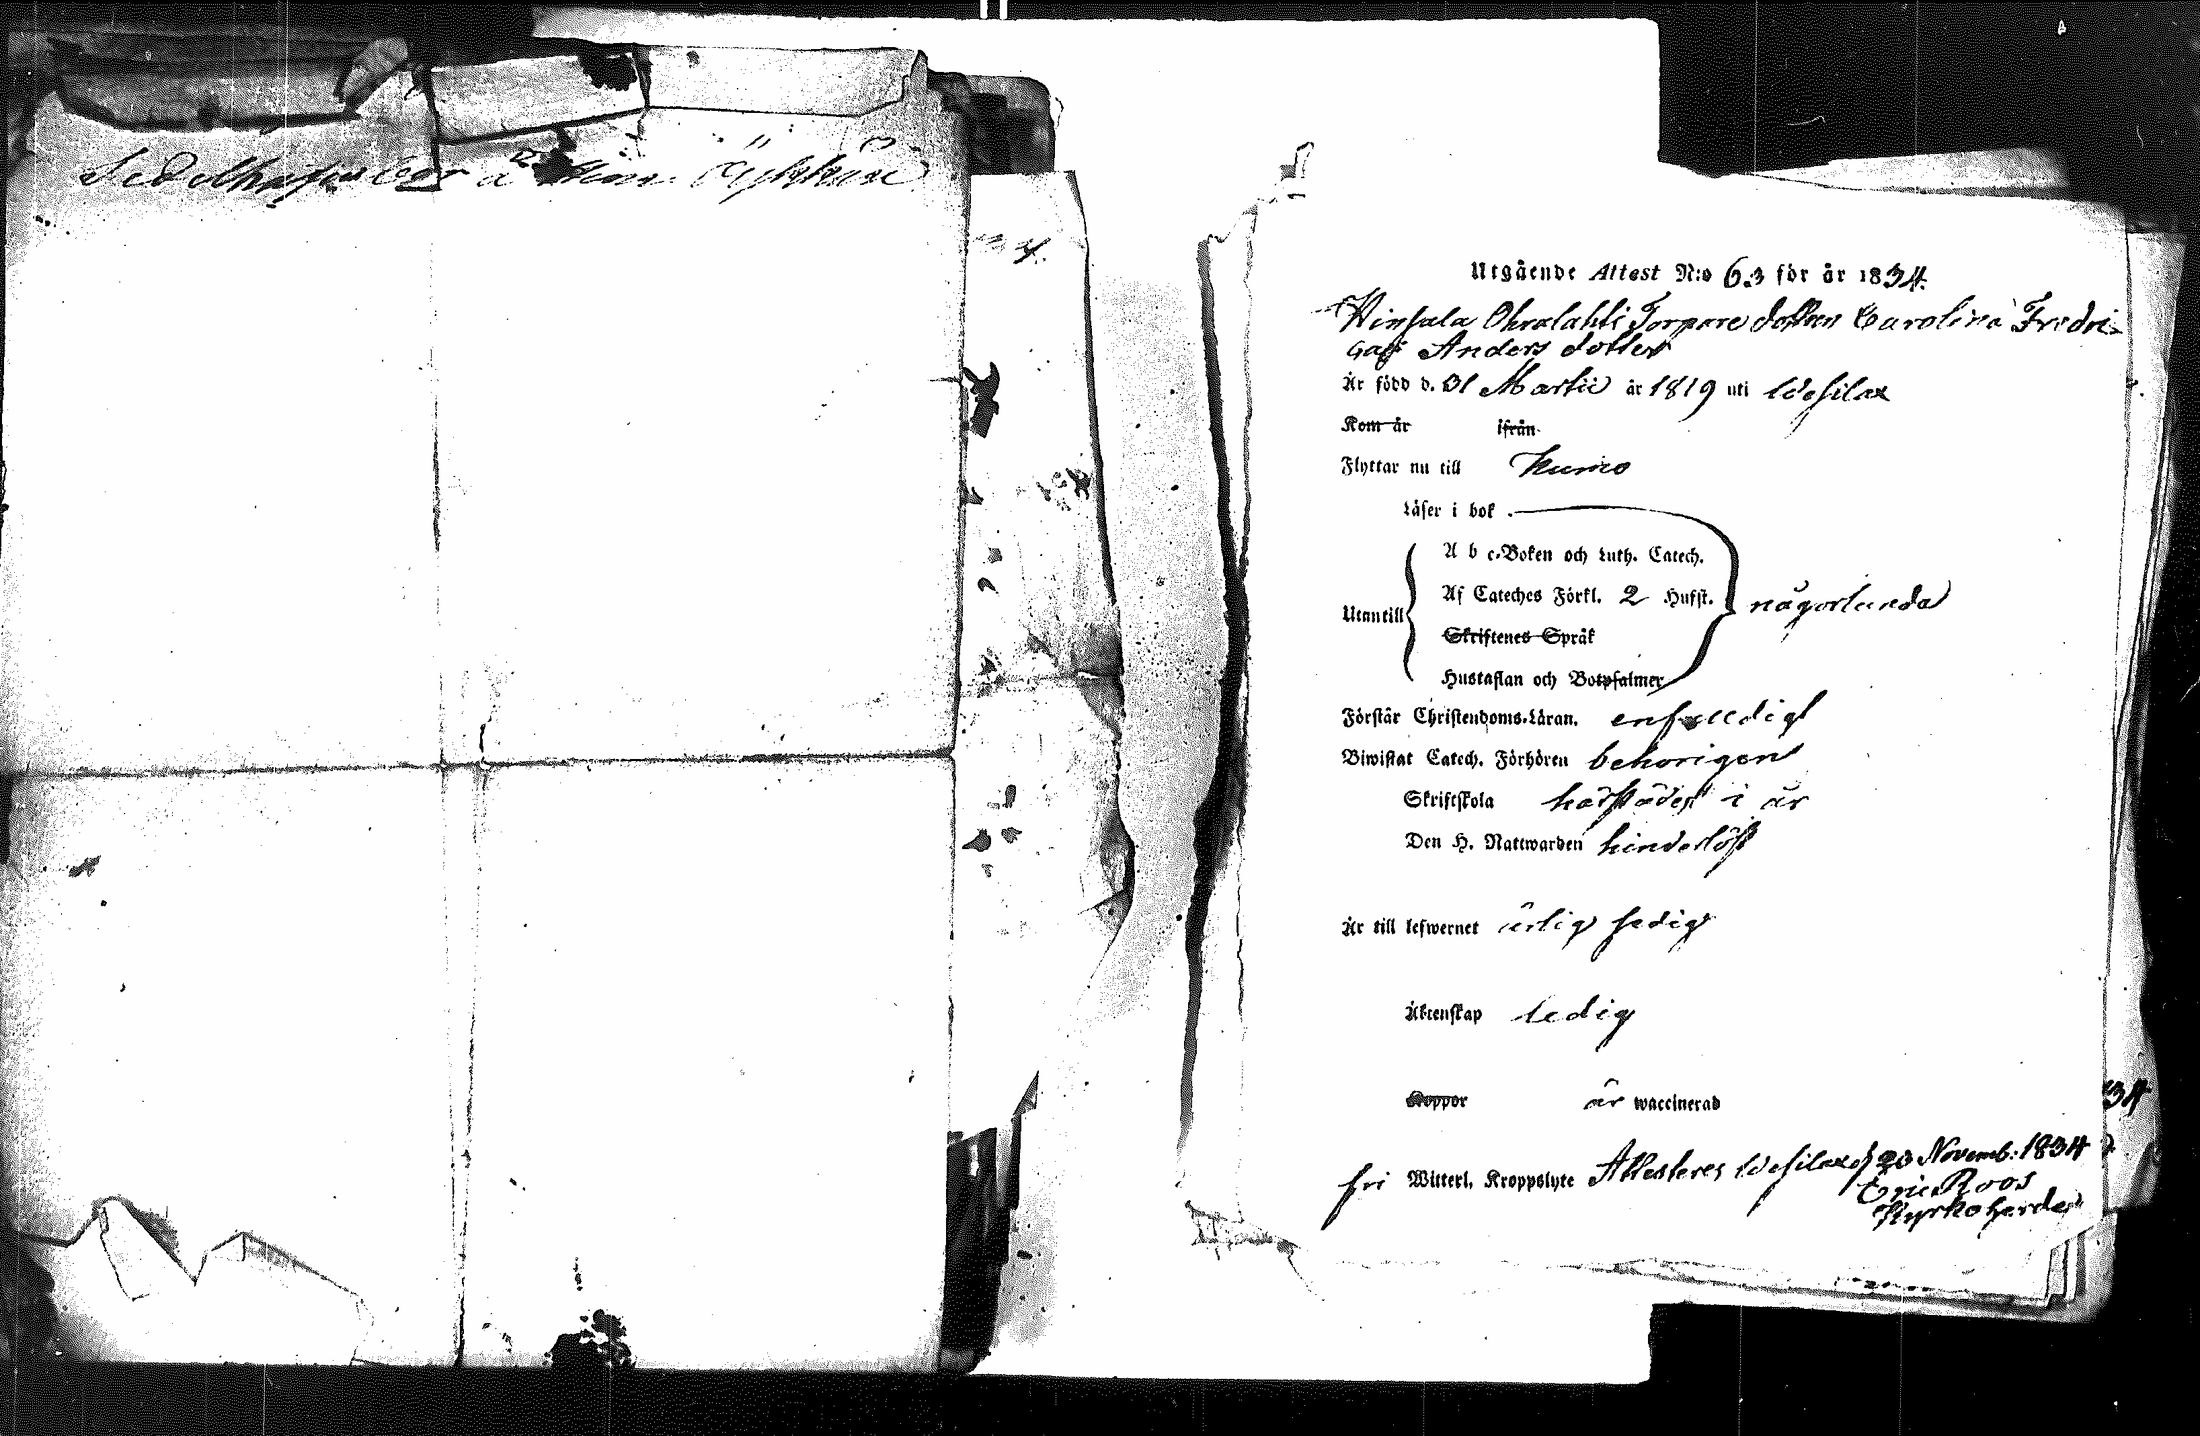 Sedelhafvarbar å
34.
Utgående Attest N:o 63 för år 1834.
Winsala Ohralahti Torpare dottren Carolina Fredri-
cas Anders dotter
Är född d. 31 Martii år 1819 uti Wesilax
Kom år ifrån
Flyttar nu till Kumo
Läser i bok
A b c-Boken och Luth. Catech.
Af Cateches Förkl. 2 Hufst. någorlunda
Utantill
Skriftenes Språk
Hustaflan och Botpsalmer
Förstår Christendoms-Läran. enfaldigt
Biwistat Catech. Förhören behörigen
Skriftskola härstädes i år
Den H. Nattwarden hinderlöst
Är till lefwernet ärlig sedig
Äktenskap ledig
Koppor är waccinerad
34
fri Witterl. Kroppslyte Attesteres Wesilax d 23 Novemb: 1834
Eric Roos
Kyrkoherde